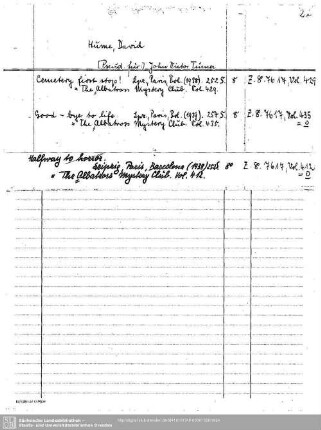 Hume, David
(Pseud. für:) John Victor Turner
Cemetery first stop! Lpz, Paris, Bol. (1938). 252 S. 8 Z. 8. 7617, Vol. 429
= The Albatross Mystery Club. Vol. 429.
Good-bye to life. Lpz, Paris, Bol. (1939). 254 S. 8 Z. 8. 7617, Vol. 435
= The Albatross Mystery Club. Vol. 435. = 0
Halfway to horror.
Leipzig, Paris, Barcelona (1938) 8° Z. 8. 7617, Vol. 412
= The Albatross Mystery Club. Vol. 412. = 0
Sächsische Landesbibliothek -
Staats- und Universitätsbibliothek Dresden